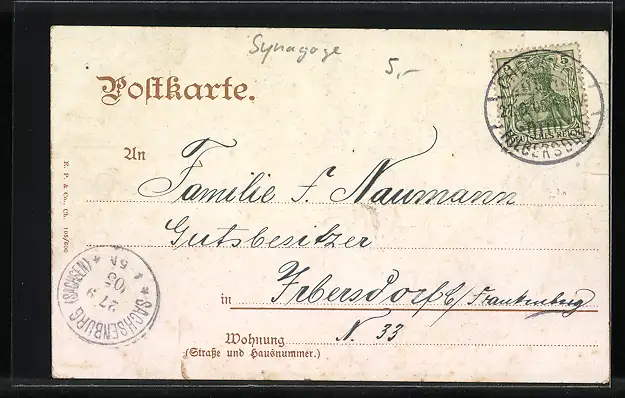 Synagoge
5,-
Postkarte.
5
An
Familie F. Naumann
Gutsbesitzer
in Irbersdorf b/ Frankenberg
N. 33
Wohnung
(Straße und Hausnummer.)
E. P. & Co., Ch.
* SACHSENBURG (SACHSEN) *
27 9
05